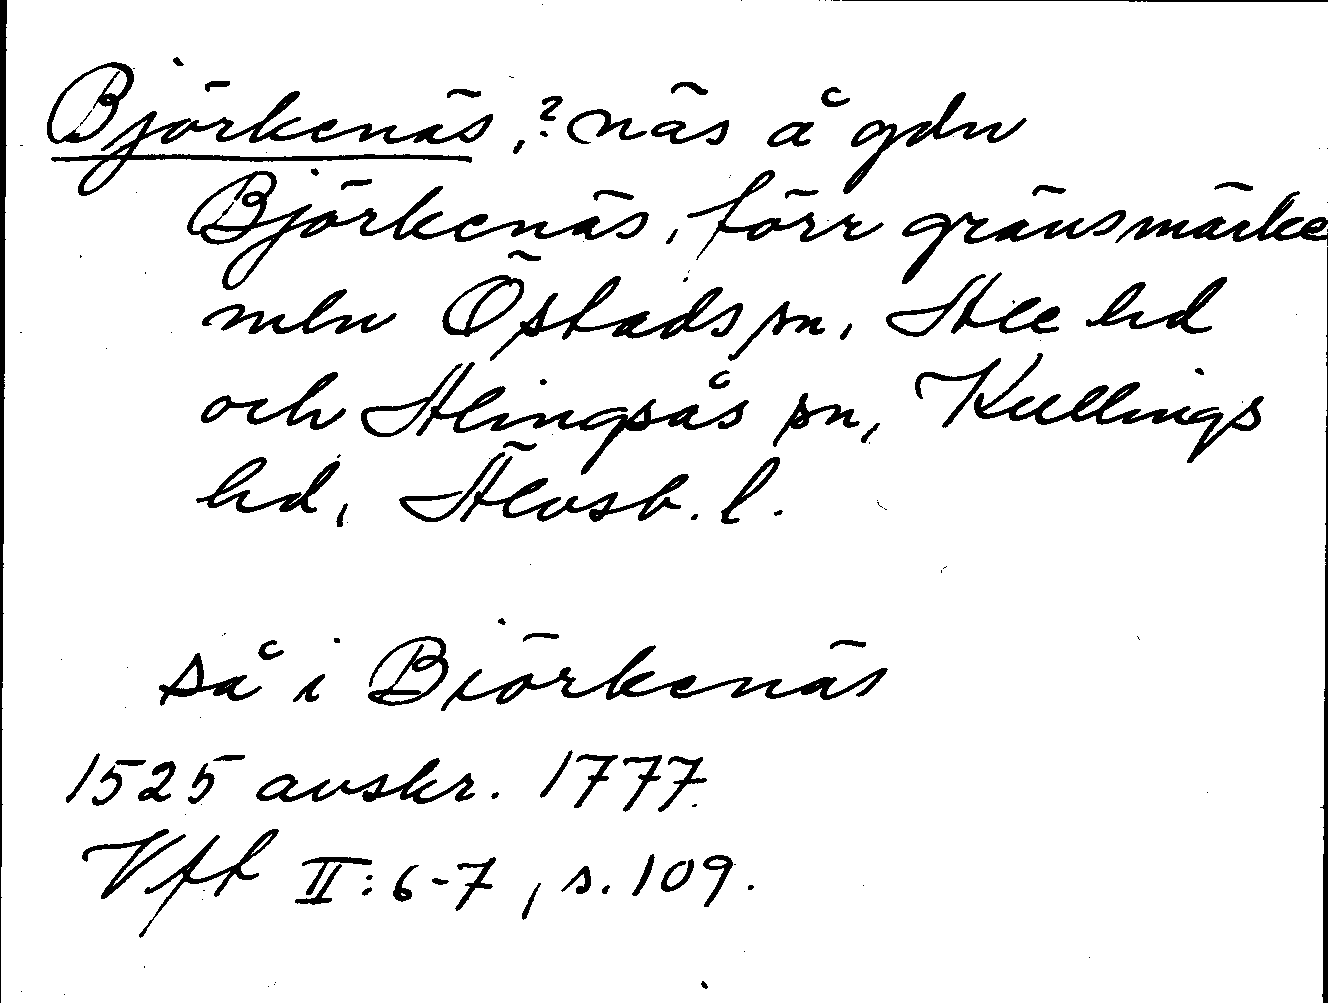 Björkenäs, ? näs å gdn
Björkenäs, förr gränsmärke
mln Östads sn, Ale hd
och Alingsås sn, Kullings
hd, Älvsb. l.
så i Biörkenäs
1525 avskr. 1777.
Vff II:6-7, s. 109.